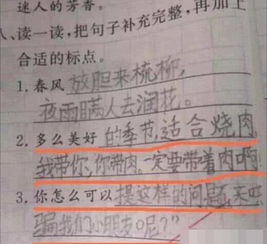 迷人的芳香。
八、读一读,把句子补充完整,再加上
合适的标点。
1. 春风放胆来梳柳,
夜雨瞒人去润花。
2. 多么美好的季节,适合烧肉,
我带你,你带肉,一定要带着肉啊
3. 你怎么可以提这样的问题,来
骗我们小朋友呢?